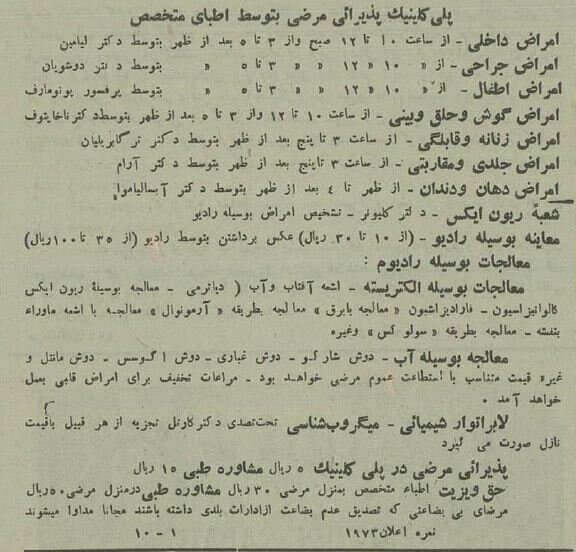 پلی کلینیك پذیرائی مرضی بتوسط اطبای متخصص
امراض داخلی - از ساعت ۱۰ تا ۱۲ صبح واز ۳ تا ۵ بعد از ظهر بتوسط دکتر لیامین
امراض جراحی - از » ۱۰ » ۱۲ » » ۳ تا ۵ » » بتوسط دکتر دوشویان
امراض اطفال - از » ۱۰ » ۱۲ » » ۳ تا ۵ » » بتوسط پرفسور پونومارف
امراض گوش وحلق وبینی - از ساعت ۱۰ تا ۱۲ واز ۳ تا ۵ بعد از ظهر بتوسط دکتر ناخایتوف
امراض زنانه وقابلگی - از ساعت ۳ تا پنج بعد از ظهر بتوسط دکتر گابریلیان
امراض جلدی ومقاربتی - از ساعت ۳ تاپنج بعد از ظهر بتوسط دکتر آرام
امراض دهان ودندان - از ظهر تا ٤ بعد از ظهر بتوسط دکتر آبسالیاموا
شعبهٔ ریون ایکس - دکتر کلیونر - تشخیص امراض بوسیله رادیو
معاینه بوسیله رادیو - (از ۱۰ تا ۳۰ ریال) عکس برداشتن بتوسط رادیو (از ۳۵ تا ۱۰۰ریال)
معالجات بوسیله رادیوم :
معالجات بوسیله الکتریسته - اشعه آفتاب وآب ( دیاترمی - معالجه بوسیلهٔ ریون ایکس
کالوانیزاسیون - فارادیزاشیون «معالجه بابرق» معالجه بطریقه «آرمونوال» معالجه با اشعه ماوراء
بنفشه - معالجه بطریقه «سولو کس» وغیره
معالجه بوسیله آب - دوش شارکو - دوش غباری - دوش اگوسس - دوش مانتل و
غیره قیمت متناسب با استطاعت عموم مرضی خواهد بود - مراعات تخفیف برای امراض قلبی بعمل
خواهد آمد .
لابراتوار شیمیائی - میگروب‌شناسی تحت‌تصدی دکتر کارتل تجزیه از هر قبیل باقیمت
نازل صورت می گیرد
پذیرائی مرضی در پلی کلینیك ۵ ریال مشاوره طبی ۱۵ ریال
حق ویزیت اطباء متخصص بمنزل مرضی ۳۰ ریال مشاوره طبی درمنزل مرضی ۵۰ریال
مرضای بی بضاعتی که تصدیق عدم بضاعت ازادارات بلدی داشته باشند مجانا مداوا میشوند
نمره اعلان ۱۹۷۳ ۱ - ۱۰